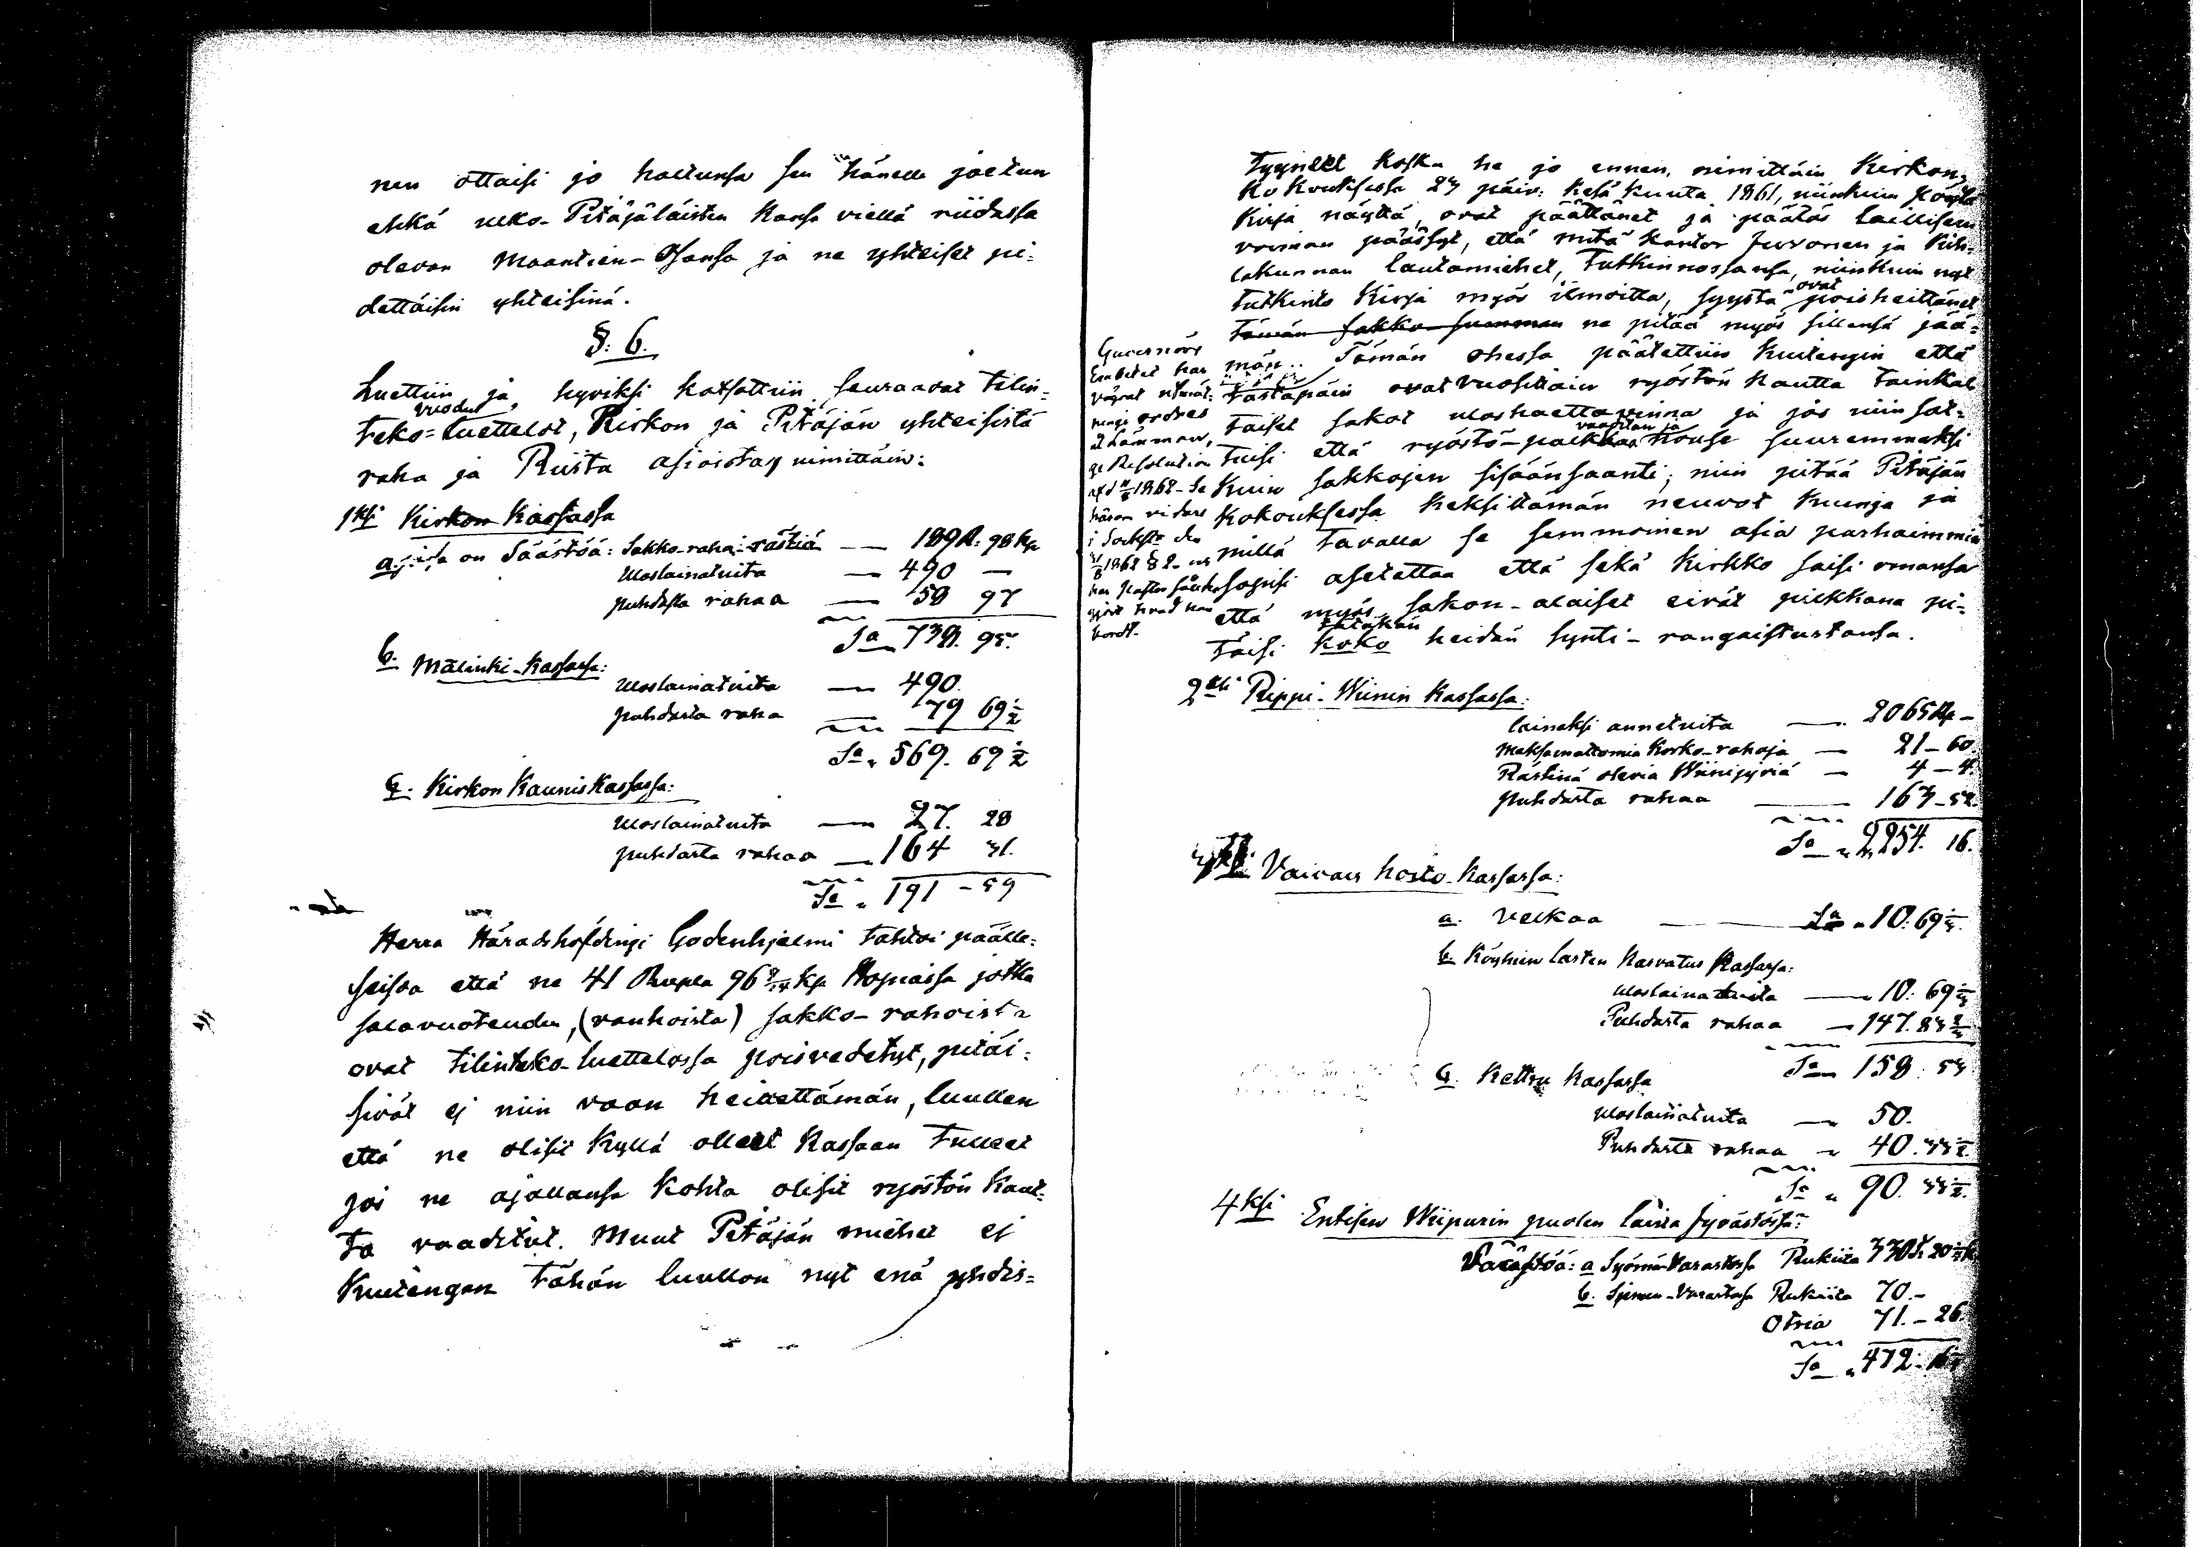 nen ottaisi jo haltunsa sen hänelle jaetun
ehkä ulko-Pitäjäläisten kansa viellä riidassa
olevan Maantien-Osansa ja ne yhteiset pi=
dettäisin yhteisinä.
§. 6.
Luettiin ja hyviksi katsottiin seuraavat tilin=
teko=luettelot, Kirkon ja Pitäjän yhteisistä
raha ja Riista asioista, nimittäin:
1ksi Kirkon Kassassa
a. on Säästöä: Sakko-raha-rästiä — 189 R. 98 Kp
Uloslainatuita — 490 —
puhdasta rahaa — 58 97
Sa 738. 95.
b. Malinki-Kassassa:
Uloslainatuita — 490.
puhdasta raha — 79 69½
Sa „ 569. 69½
c. Kirkon Kaunis Kassassa:
Uloslainatuita — 27. 28
puhdasta rahaa — 164 31.
Sa „ 191 - 59
Herra Häradshöfdingi Godenhjelmi tahtoi päälle=
seisoa että ne 41 Rupla 96 Kp Hopiassa jotka
salavuoteuden, (vanhoista) sakko-rahoista
ovat tilinteko-luettelossa poisvedetyt, pitäi=
sivät ej niin vaan heitettämän, luullen
että ne olisit kyllä olleet Kassaan tulleet
jos ne ajallansa kohta olisit ryöstön kaut=
ta vaaditut. Muut Pitäjän miehet ej
kuitengan tähän luulloon nyt enä yhdis=
tyyneet koska he jo ennen, nimittäin Kirkon,
Kokouksessa 23 päiv: Kesäkuuta 1861, niinkuin Pöytä
Kirja näyttä, ovat päättänet ja päätös laillisen
voiman päässyt, että mitä kantor Juvonen ja Kih=
lakunnan lautamiehet, Tutkinnossansa, niinkuin nyt
ovat
tutkinto Kirja myös ilmoitta, syystä poisheittänet
tämän sakko-summan ne pitää myös sillensä jää=
män.. Tämän ohessa päätettiin kuitengin että
tästäpäin ovat vuosittain ryöstön kautta tainkal
taiset sakot uloshaettavinna ja jos niin sat=
vaivan ja
tuisi että ryöstö-palkkaa nouse suuremmaksi
kuin sakkojen sisäänsaanti, niin pitää Pitäjän
Kokouksessa keksittämän neuvot kuinga ja
millä tavalla se semmoinen asia parhaimmin
sopisi asetettaa että sekä Kirkko saisi omansa
että myös sakon-alaiset eivät pilkkana pi=
täisi koko heidän synti-rangaistustansa.
Guvernörs
Embetet har
vägrat utmät=
nings ordres
1862
1862 § 2
2ksi Rippi-Wiinin Kassassa:
lainaksi annetuita — 2065 Rp —
Maksamattomia Korko-rahoja — 21 - 60.
Rästinä olevia Wiinijyviä — 4 - 4.
puhdasta rahaa — 163 - 52.
Sa „ 2,254. 16.
3ksi Vaivais hoito-Kassassa:
a. Velkaa — Sa „ 10. 69
b. Köyhien lasten Kasvatus Kassassa:
Uloslainatuita — 10. 69
Puhdasta rahaa — 147. 83
Sa 158. 53
c. Kettu Kassassa
Uloslainatuita — 50.
Puhdasta rahaa „ 40. 33½
Sa „ 90. 33½.
4ksi Entisen Wiipurin puolen laina Jyvästössä:
Säästöä: a Syömä-Varastossa Rukiita 330 t. 20
b. Siemen-Varastossa Rukiita 70. -
Otria 71. - 26.
Sa „ 472.